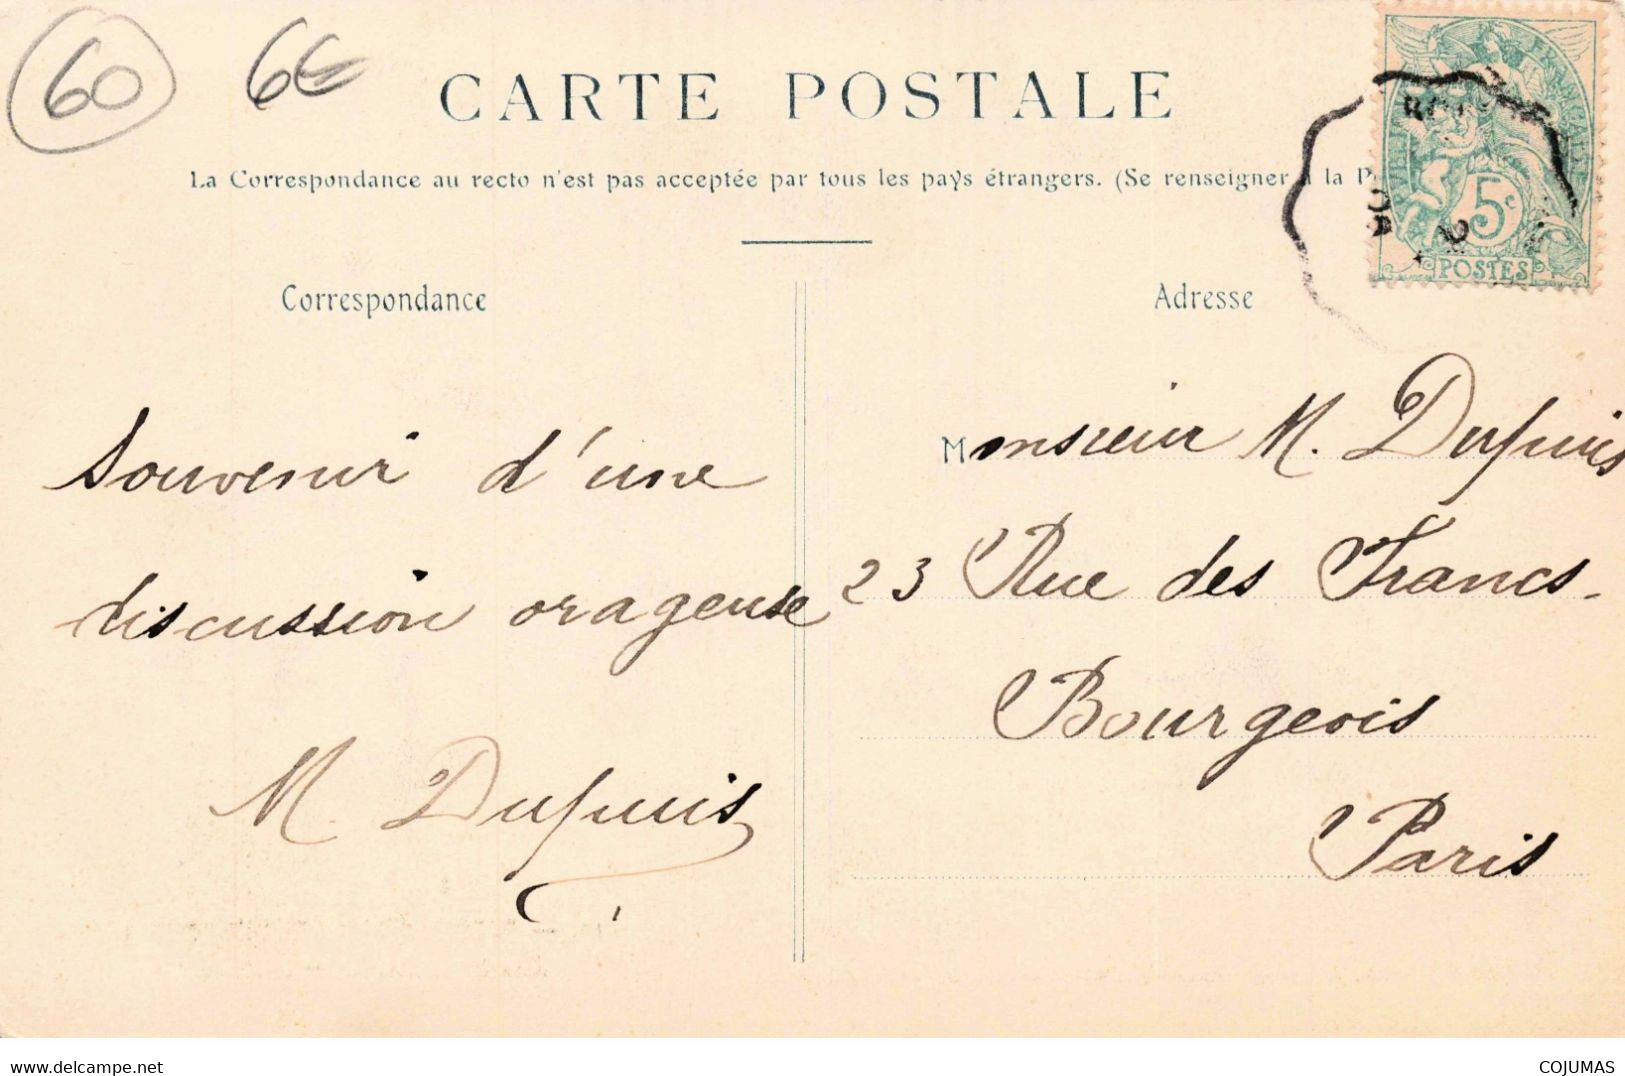 60
6€
CARTE POSTALE
La Correspondance au recto n'est pas acceptée par tous les pays étrangers. (Se renseigner à la
Correspondance
Adresse
5c
POSTES
Souvenir d'une
discussion orageuse
M. Dupuis
Monsieur M. Dupuis
23 Rue des Francs-
Bourgeois
Paris
COJUMAS